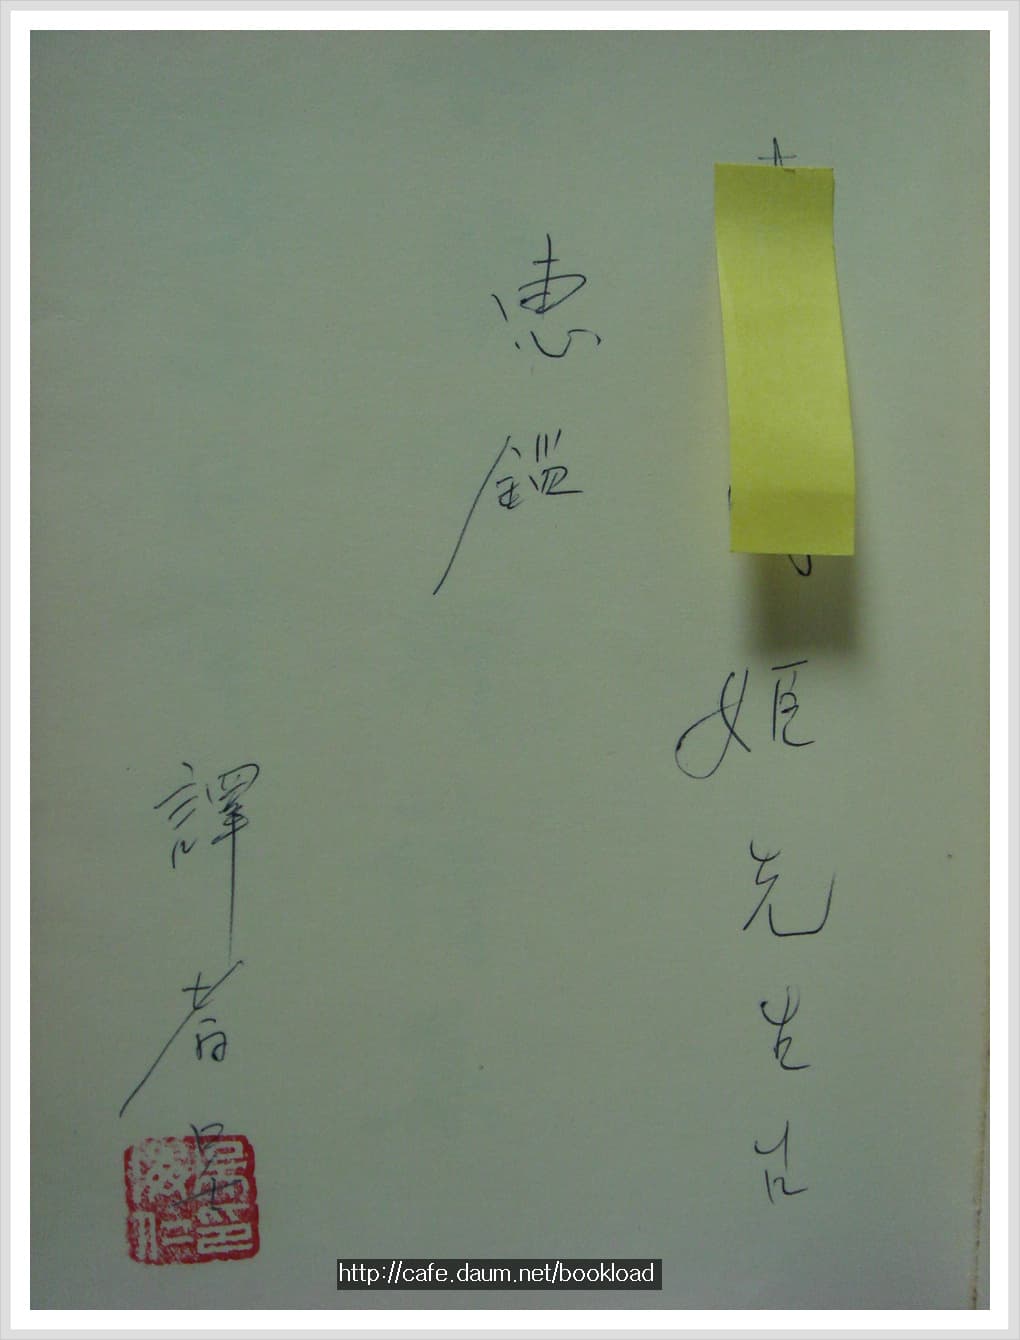 姬先生古
惠鑑
譯者呈
http://cafe.daum.net/bookload